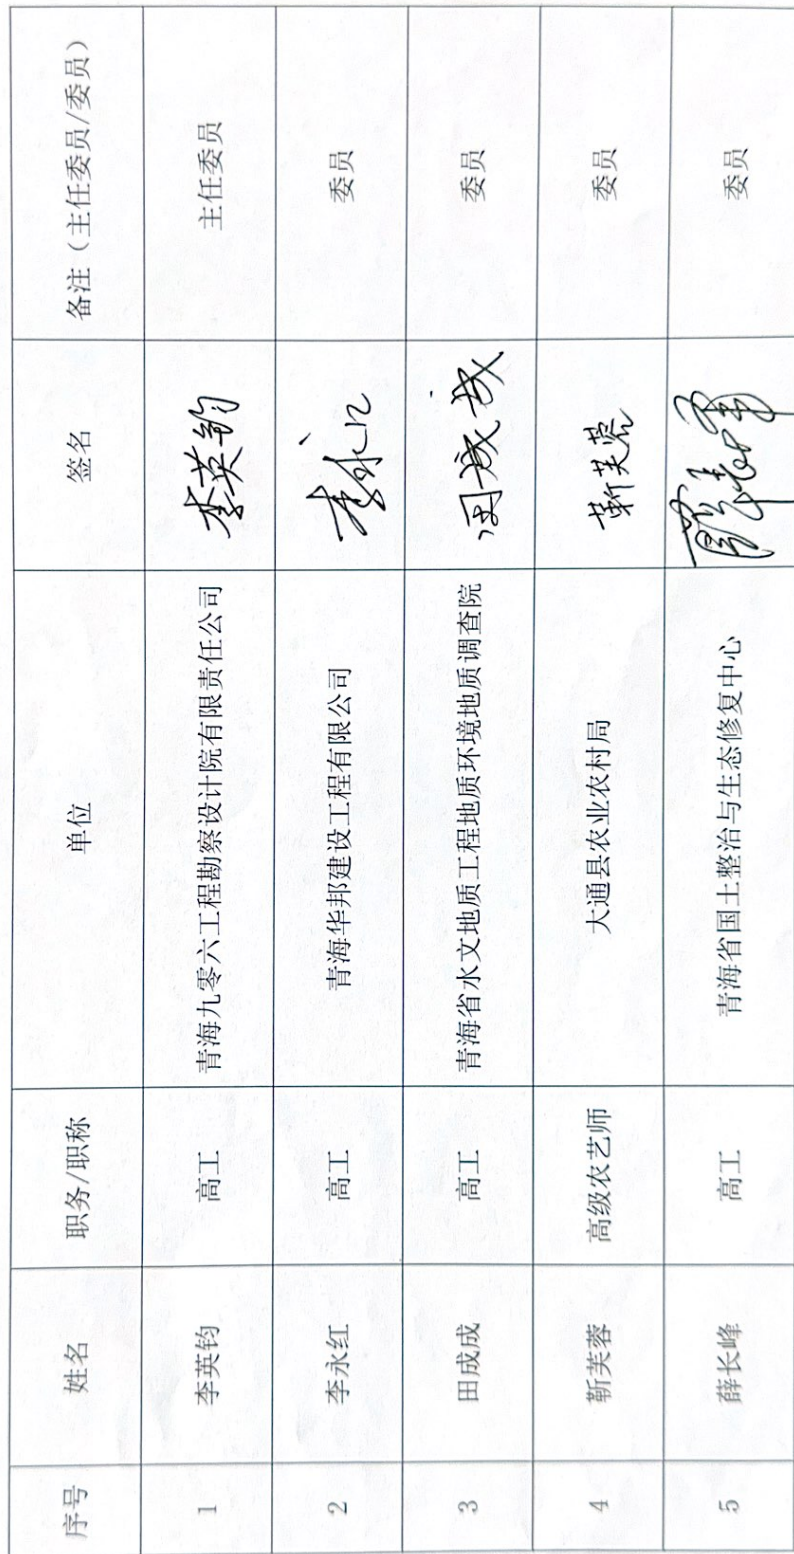 序号 姓名 职务/职称 单位 签名 备注（主任委员/委员）
1 李英钧 高工 青海九零六工程勘察设计院有限责任公司 李英钧 主任委员
2 李永红 高工 青海华邦建设工程有限公司 李永红 委员
3 田成成 高工 青海省水文地质工程地质环境地质调查院 田成成 委员
4 靳芙蓉 高级农艺师 大通县农业农村局 靳芙蓉 委员
5 薛长峰 高工 青海省国土整治与生态修复中心 薛长峰 委员